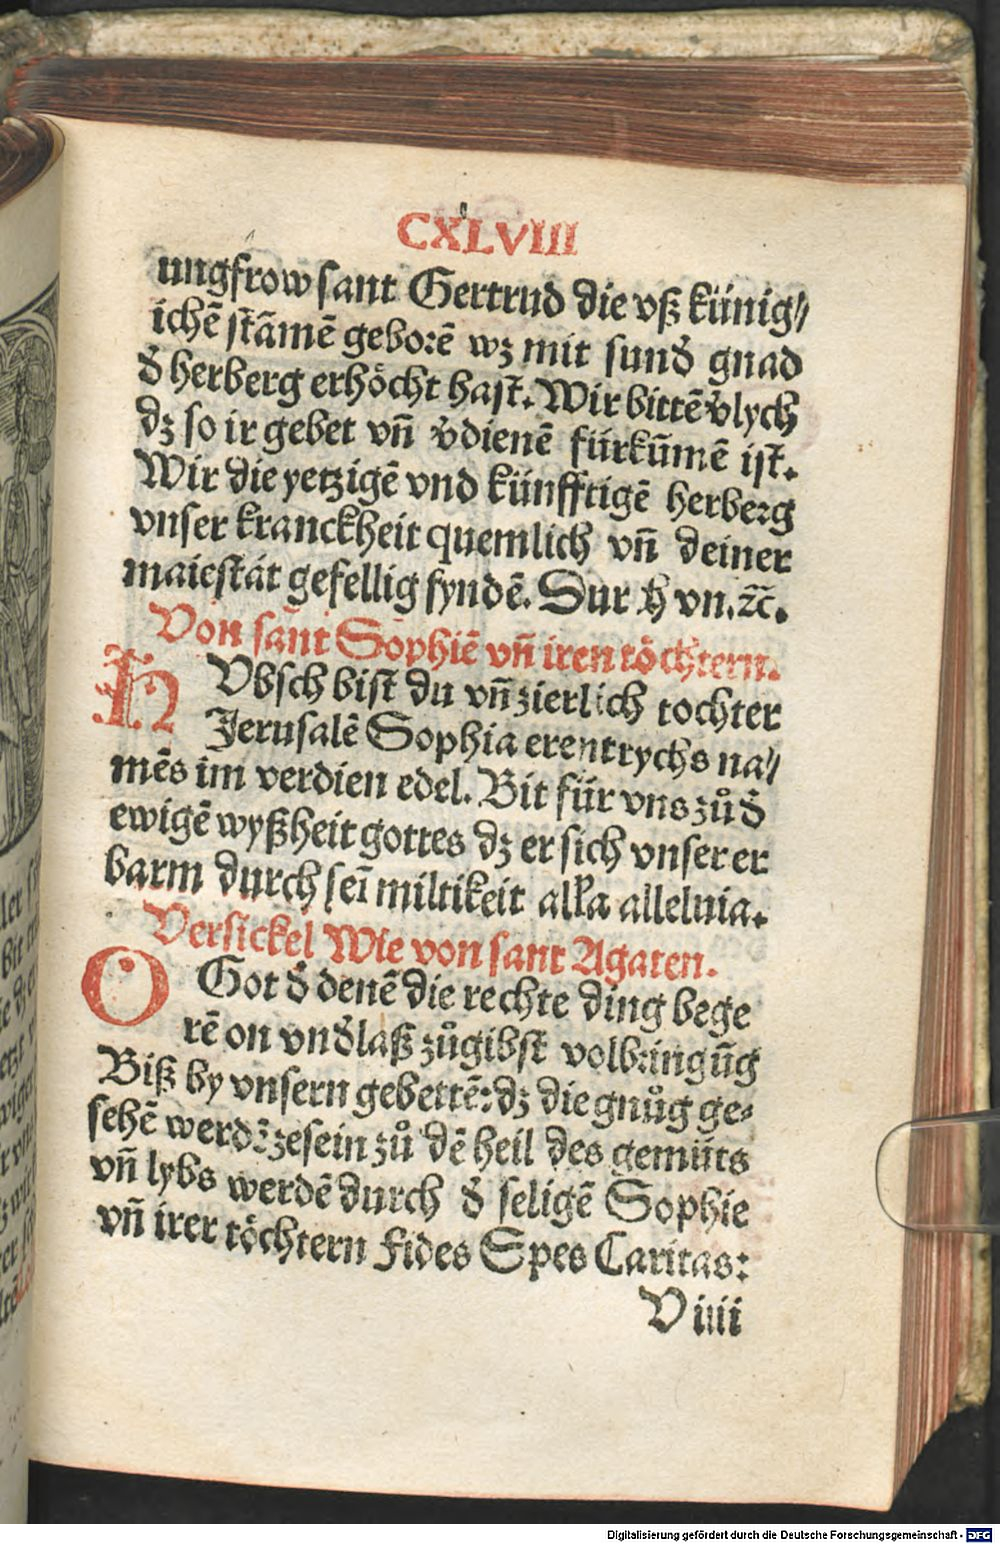 CXLVIII
ungfrow sant Gertrud die vß künig⸗
ichē stāmē geborē wz mit sund̾ gnad
d̾ herberg erhöcht hast. Wir bittē v̾lych
dz so ir gebet vñ v̾dienē fürkūmē ist.
Wir die yetzigē vnd künfftigē herberg
vnser kranckheit quemlich vñ deiner
maiestat gefellig fyndē. Dur vn. ⁊c̄.
Von sant Sophiē vñ iren töchtern.
HVbsch bist du vñ zierlich tochter
Jerusalē Sophia erentrychs na⸗
mēs im verdien edel. Bit für vns zů d̾
ewigē wyßheit gottes dz er sich vnser er
barm durch seī miltikeit alła alleluia.
Versickel Wie von sant Agaten.
O Got d̾ denē die rechte ding bege
rē on vnd̾laß zůgibst volbringūg
Biß by vnsern gebettē: dz die gnůg ge⸗
sehē werdē zesein zů dē heil des gemüts
vñ lybs werdē durch d̾ seligē Sophie
vñ irer töchtern Fides Spes Caritas:
V iiii
Digitalisierung gefördert durch die Deutsche Forschungsgemeinschaft - DFG